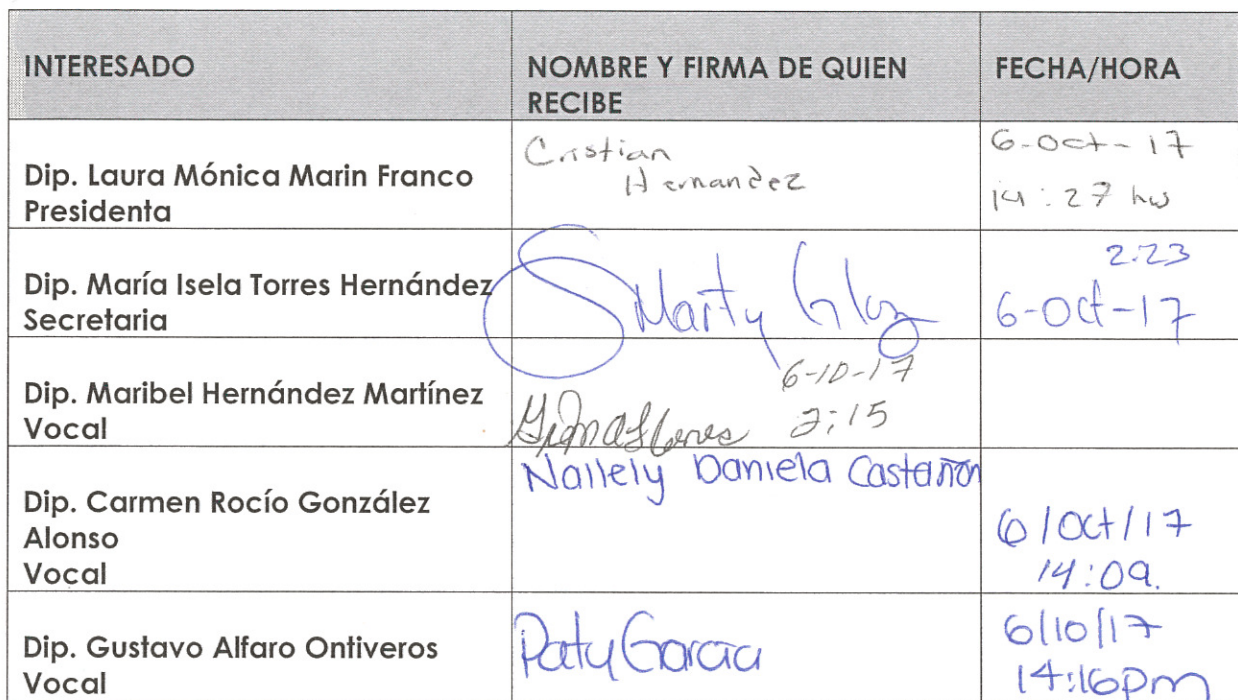 INTERESADO
NOMBRE Y FIRMA DE QUIEN
RECIBE
FECHA/HORA
Dip. Laura Mónica Marin Franco
Presidenta
Cristian
Hernandez
6-Oct-17
14:27 hrs
Dip. María Isela Torres Hernández
Secretaria
Marty
2:23
6-Oct-17
Dip. Maribel Hernández Martínez
Vocal
6-10-17
2:15
Dip. Carmen Rocío González
Alonso
Vocal
Nallely Daniela Castañon
6/Oct/17
14:09.
Dip. Gustavo Alfaro Ontiveros
Vocal
Paty Garcia
6/10/17
14:16pm